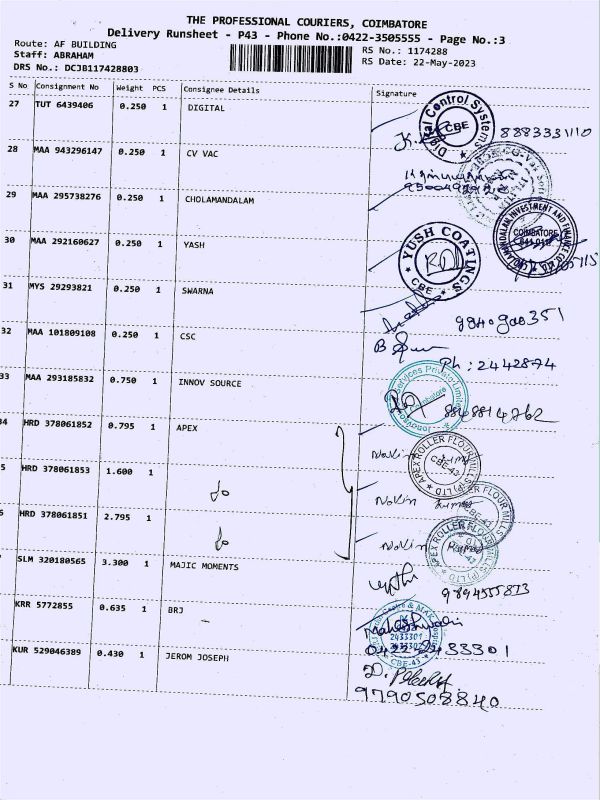 THE PROFESSIONAL COURIERS, COIMBATORE
Delivery Runsheet - P43 - Phone No.:0422-3505555 - Page No.:3
Route: AF BUILDING
Staff: ABRAHAM
DRS No.: DCJB117428803
RS No.: 1174288
RS Date: 22-May-2023
S No Consignment No Weight PCS Consignee Details Signature
27 TUT 6439406 0.250 1 DIGITAL
Digital Control Systems
CBE
8883331110
28 MAA 943296147 0.250 1 CV VAC
29 MAA 295738276 0.250 1 CHOLAMANDALAM
CHOLAMANDALAM INVESTMENT AND FINANCE
COIMBATORE
30 MAA 292160627 0.250 1 YASH
YUSH COATINGS
CBE
31 MYS 29293821 0.250 1 SWARNA
32 MAA 101809108 0.250 1 CSC
Ph: 2442874
33 MAA 293185832 0.750 1 INNOV SOURCE
Services Private Limited
Coimbatore
8848814762
34 HRD 378061852 0.795 1 APEX
Navin Kumar
APEX ROLLER FLOUR MILLS (P) LTD
CBE-43
5 HRD 378061853 1.600 1 do
Navin Kumar
ROLLER FLOUR MILLS
CBE-43
6 HRD 378061851 2.795 1 do
Navin Kumar
APEX ROLLER FLOUR MILLS (P) LTD
SLM 320180565 3.300 1 MAJIC MOMENTS
9894555813
KRR 5772855 0.635 1 BRJ
Maheshwari
2433301
CBE-43
0422-2433301
KUR 529046389 0.430 1 JEROM JOSEPH
9790508840